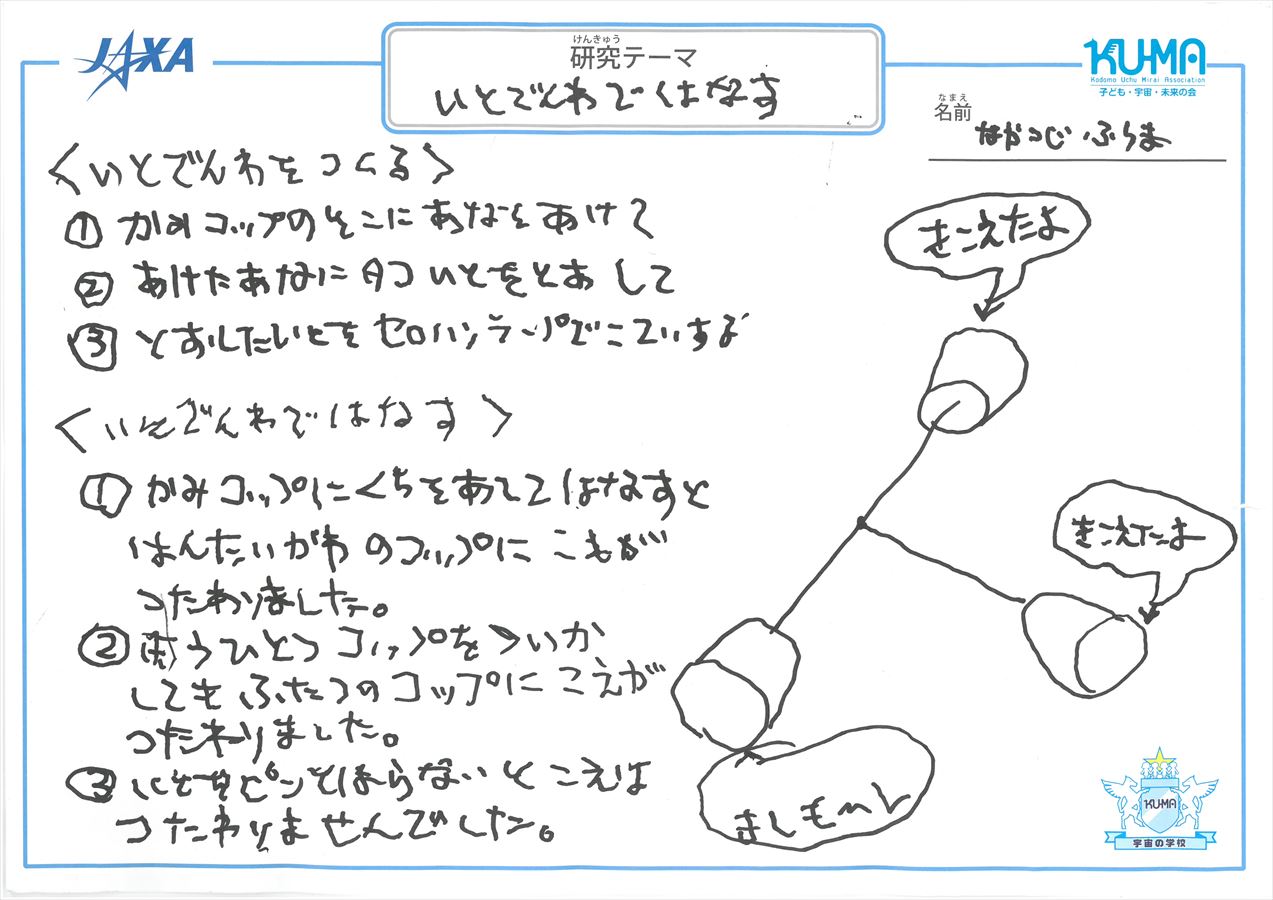 JAXA
けんきゅう
研究テーマ
いとでんわではなす
KU-MA
Kodomo Uchu Mirai Association
子ども・宇宙・未来の会
なまえ
名前
なかつじ ふうま
<いとでんわをつくる>
① かみコップのそこにあなをあけて
② あけたあなに たこいとをとおして
③ とおしたいとを セロハンテープでこていする
<いとでんわではなす>
① かみコップにくちをあててはなすと
はんたいがわのコップに こえが
つたわりました。
② もうひとつ コップをついか
しても ふたつのコップに こえが
つたわりました。
③ いとをピンとはらないと こえは
つたわりませんでした。
きこえたよ
きこえたよ
もしもーし
KU-MA
宇宙の学校